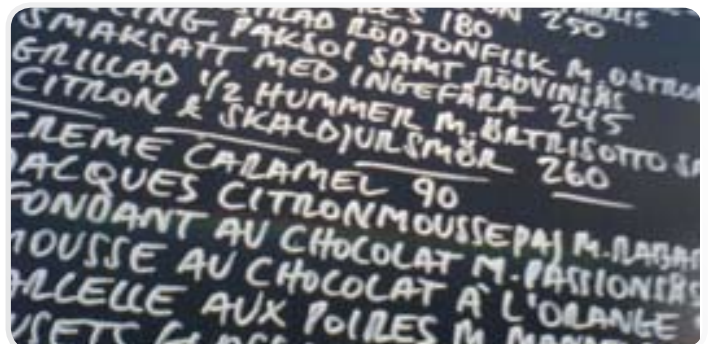 180 250
RÖDTONFISK M. OSTRON
PAKSOI SAMT RÖDVINSÅS
SMAKSATT MED INGEFÄRA 245
GRILLAD 1/2 HUMMER M. ÖRTRISOTTO
CITRON & SKALDJURSMÖR 260
CREME CARAMEL 90
JACQUES CITRONMOUSSEPAJ M. RABAR
FONDANT AU CHOCOLAT M. PASSIONSÅS
MOUSSE AU CHOCOLAT À L'ORANGE
AUX POIRES M.